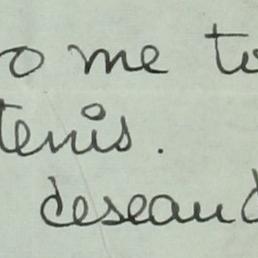 o me to
tenis.
desead